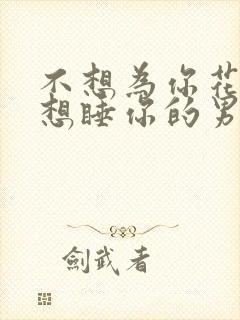 不想為你花
想睡你的男
劍武者